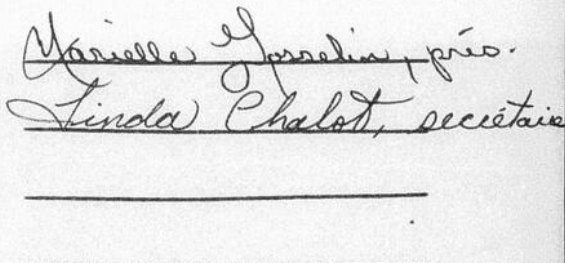 Marielle Gosselin, prés.
Linda Chalot, secrétaire